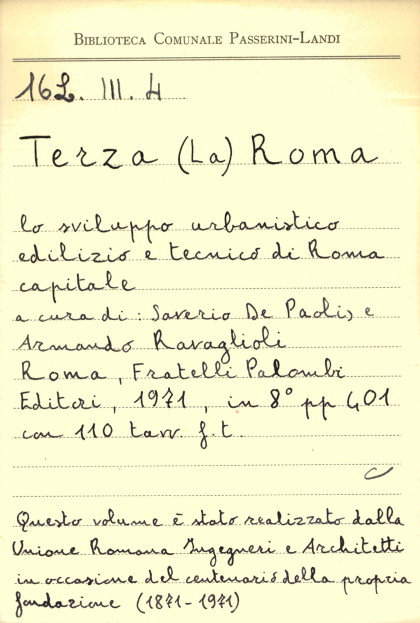 BIBLIOTECA COMUNALE PASSERINI-LANDI
16L. III. 4
Terza (La) Roma
lo sviluppo urbanistico
edilizio e tecnico di Roma
capitale
a cura di: Saverio De Paolis e
Armando Ravaglioli
Roma, Fratelli Palombi
Editori, 1971, in 8° pp 401
con 110 tavv. f.t.
Questo volume è stato realizzato dalla
Unione Romana Ingegneri e Architetti
in occasione del centenario della propria
fondazione (1871-1971)